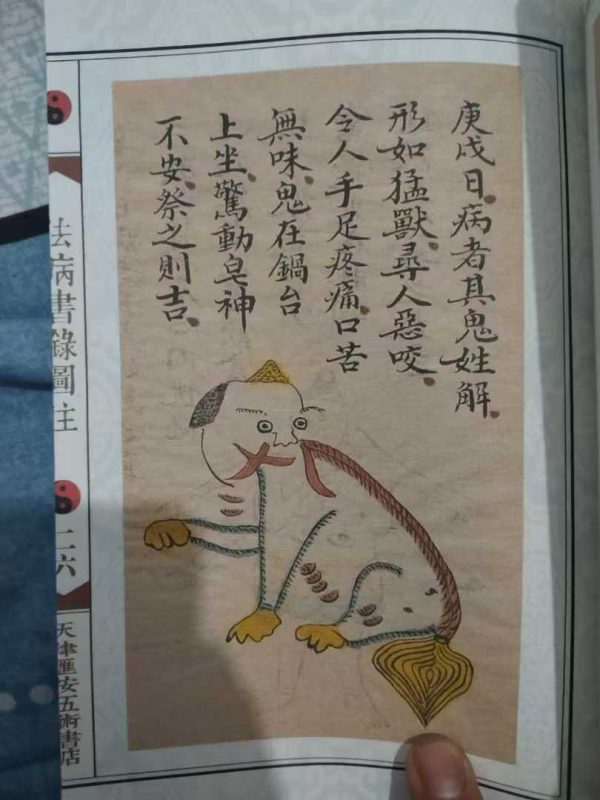 庚戌日、病者其鬼姓解、
形如猛獸、尋人惡咬、
令人手足疼痛、口苦
無味、鬼在鍋台
上坐、驚動皂神
不安、祭之則吉、
法病書錄圖注
二六
天津匯安五術書店